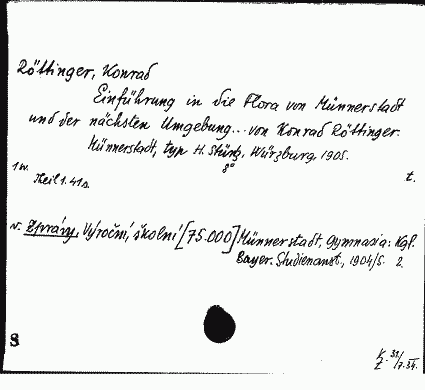 Röttinger, Konrad
Einführung in die Flora von Münnerstadt
und der nächsten Umgebung... von Konrad Röttinger.
Münnerstadt, typ H. Stürtz, Würzburg 1905.
8°
1 w. t.
Theil 1. 41 s.
v. Zprávy, Výroční, školní [75.000] Münnerstadt, Gymnasia: Kgl.
Bayer. Studienanst., 1904/5. 2.
S
K. 33/
Z 7.34.